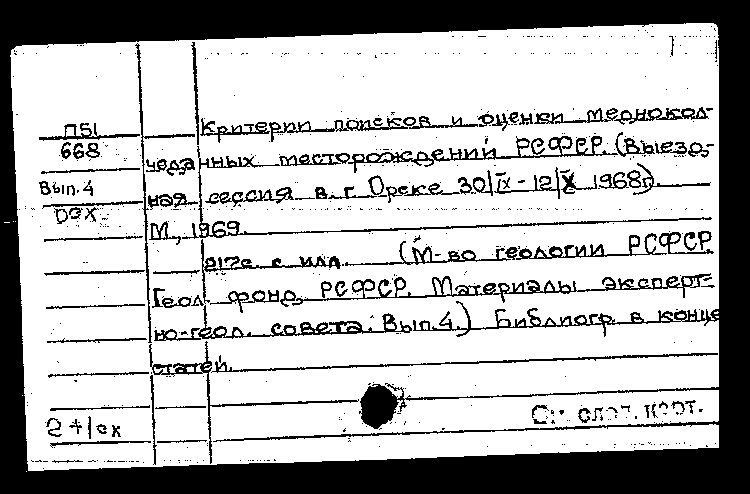 П51
668
Вып. 4
Критерии поисков и оценки меднокол-
чеданных месторождений РСФСР. (Выезд-
ная сессия в г. Орске 30/IX - 12/X 1968г).
М., 1969.
217с. с илл. (М-во геологии РСФСР.
Геол. фонд РСФСР. Материалы эксперт-
но-геол. совета. Вып. 4.) Библиогр. в конце
статей.